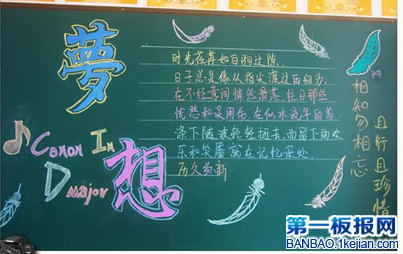 夢
想
时光荏苒如白驹过隙。
日子总是像从指尖渡过的细沙,
在不经意间悄然滑落。往日那些
忧愁和误用伤,在似水流年的荡
涤下随波轻轻逝去,而留下的欢
乐和笑靥就在记忆深处,
历久弥新
Canon In
D major
相知勿相忘
且行且珍惜
第一板报网
BANBAO.1kejian.com